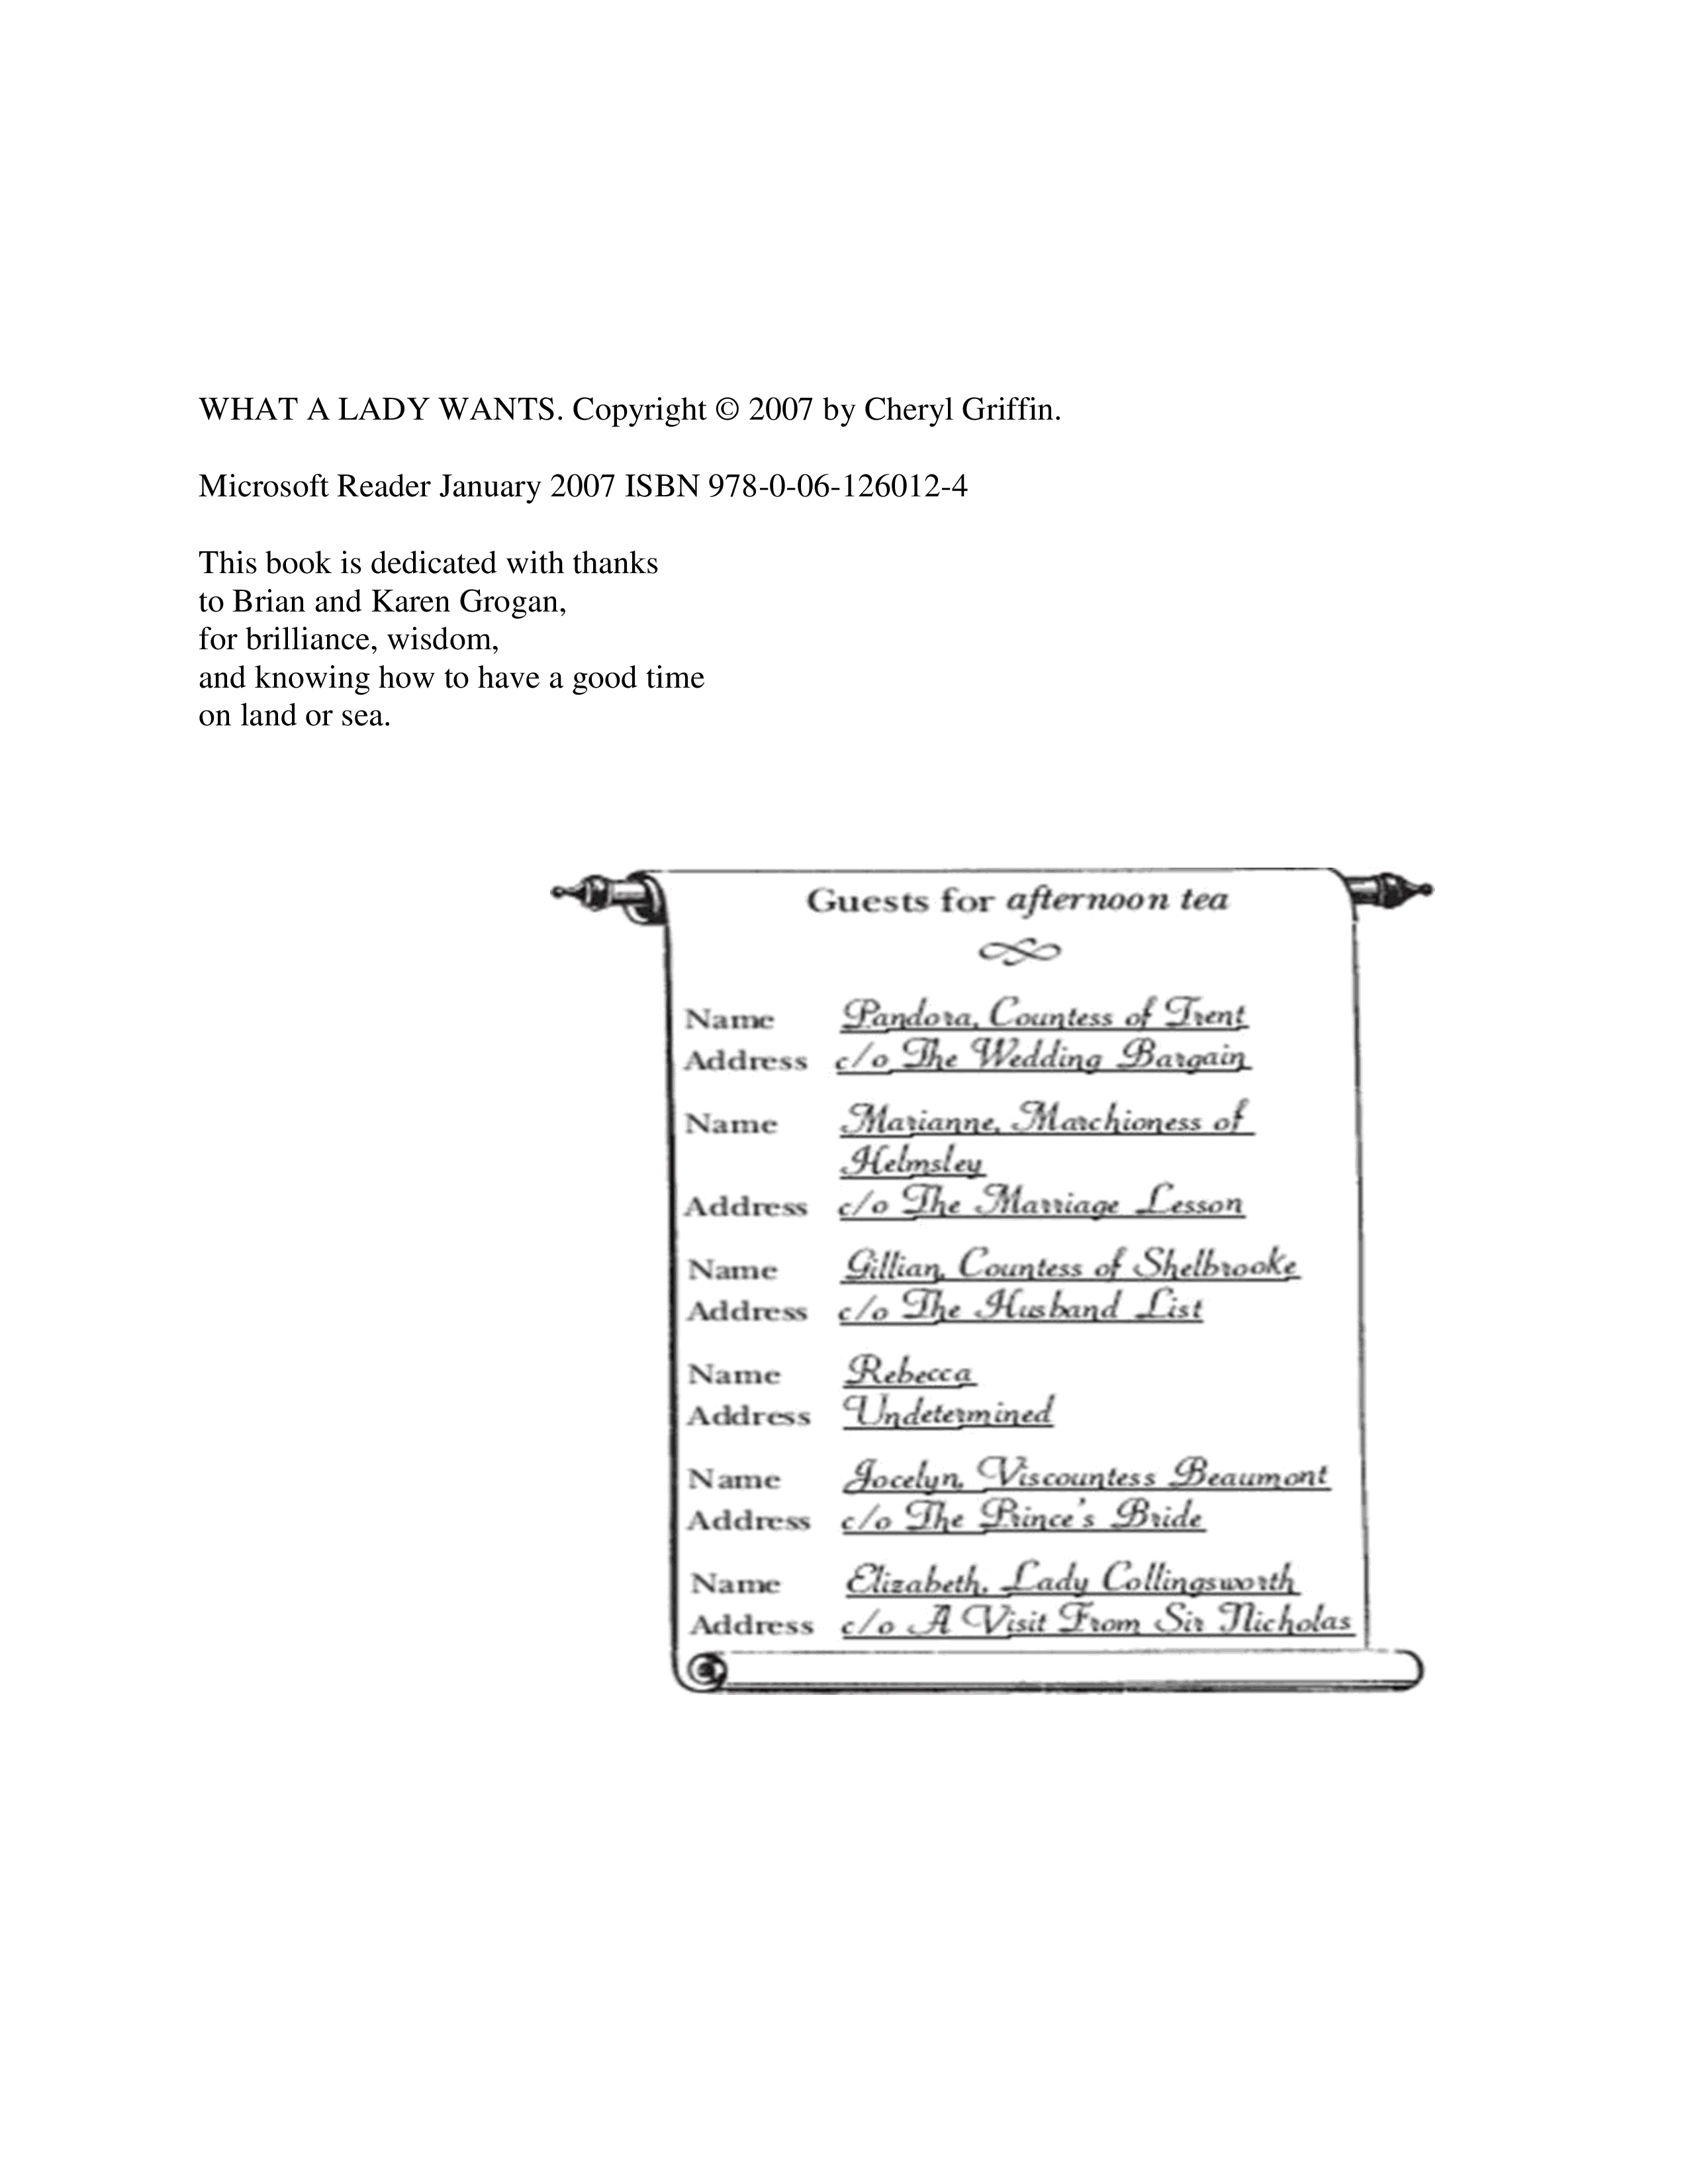 WHAT A LADY WANTS. Copyright © 2007 by Cheryl Griffin.
Microsoft Reader January 2007 ISBN 978-0-06-126012-4
This book is dedicated with thanks
to Brian and Karen Grogan,
for brilliance, wisdom,
and knowing how to have a good time
on land or sea.
Guests for afternoon tea
Name Pandora, Countess of Trent
Address c/o The Wedding Bargain
Name Marianne, Marchioness of
Helmsley
Address c/o The Marriage Lesson
Name Gillian, Countess of Shelbrooke
Address c/o The Husband List
Name Rebecca
Address Undetermined
Name Jocelyn, Viscountess Beaumont
Address c/o The Prince's Bride
Name Elizabeth, Lady Collingsworth
Address c/o A Visit From Sir Nicholas